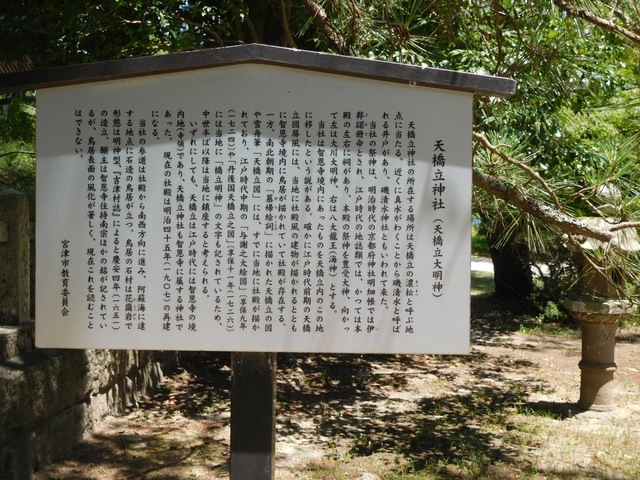 天橋立神社(天橋立大明神)
天橋立神社の所在する場所は天橋立の「濃松」と呼ぶ地
点に当たる。近くに真水がわくことから磯清水と呼ば
れる井戸があり、磯清水神社ともいわれて来た。
当社の祭神は、明治時代の京都府神社明細帳では伊
弉諾命とされ、江戸時代の地誌類では、かつては本
殿の左右に祠があり、本殿の祭神を豊受大神、向かっ
て左は大川大明神、右は八大龍王(海神)とする。
当社は智恩寺境内にあったものを天橋立内のこの地
に移したという説がある。確かに江戸時代前期の天橋
立図屏風では、当地に社殿風の建物が描かれるととも
に智恩寺境内に鳥居が描かれていて社殿が存在する。
一方、南北朝期の「慕帰絵詞」に描かれた天橋立の図
や雪舟筆「天橋立図」には、すでに当地に社殿が描か
れており、江戸時代中期の「与謝之大絵図」(享保九年
(一七二四)や「丹後国天橋立之図」(享保十一年(一七二六)
には当地に「橋立明神」の文字も記されているため、
中世半ば以降は当地に鎮座すると考えられる。
いずれにしても、天橋立は江戸時代には智恩寺の境
内地(寺領)であり、天橋立神社も智恩寺に属する神社で
あった。現在の社殿は明治四十年(一九〇七)の再建
になる。
当社の参道は社殿から南西方向に進み、阿蘇海に達
する地点に石造の鳥居が立つ。鳥居の石材は花崗岩で
形態は明神型、『吉津村誌』によると慶安四年(一六五一)
の造立、願主は智恩寺住持南宗ほかの銘が記されてい
るが、鳥居表面の風化が著しく、現在これを読むこと
はできない。
宮津市教育委員会